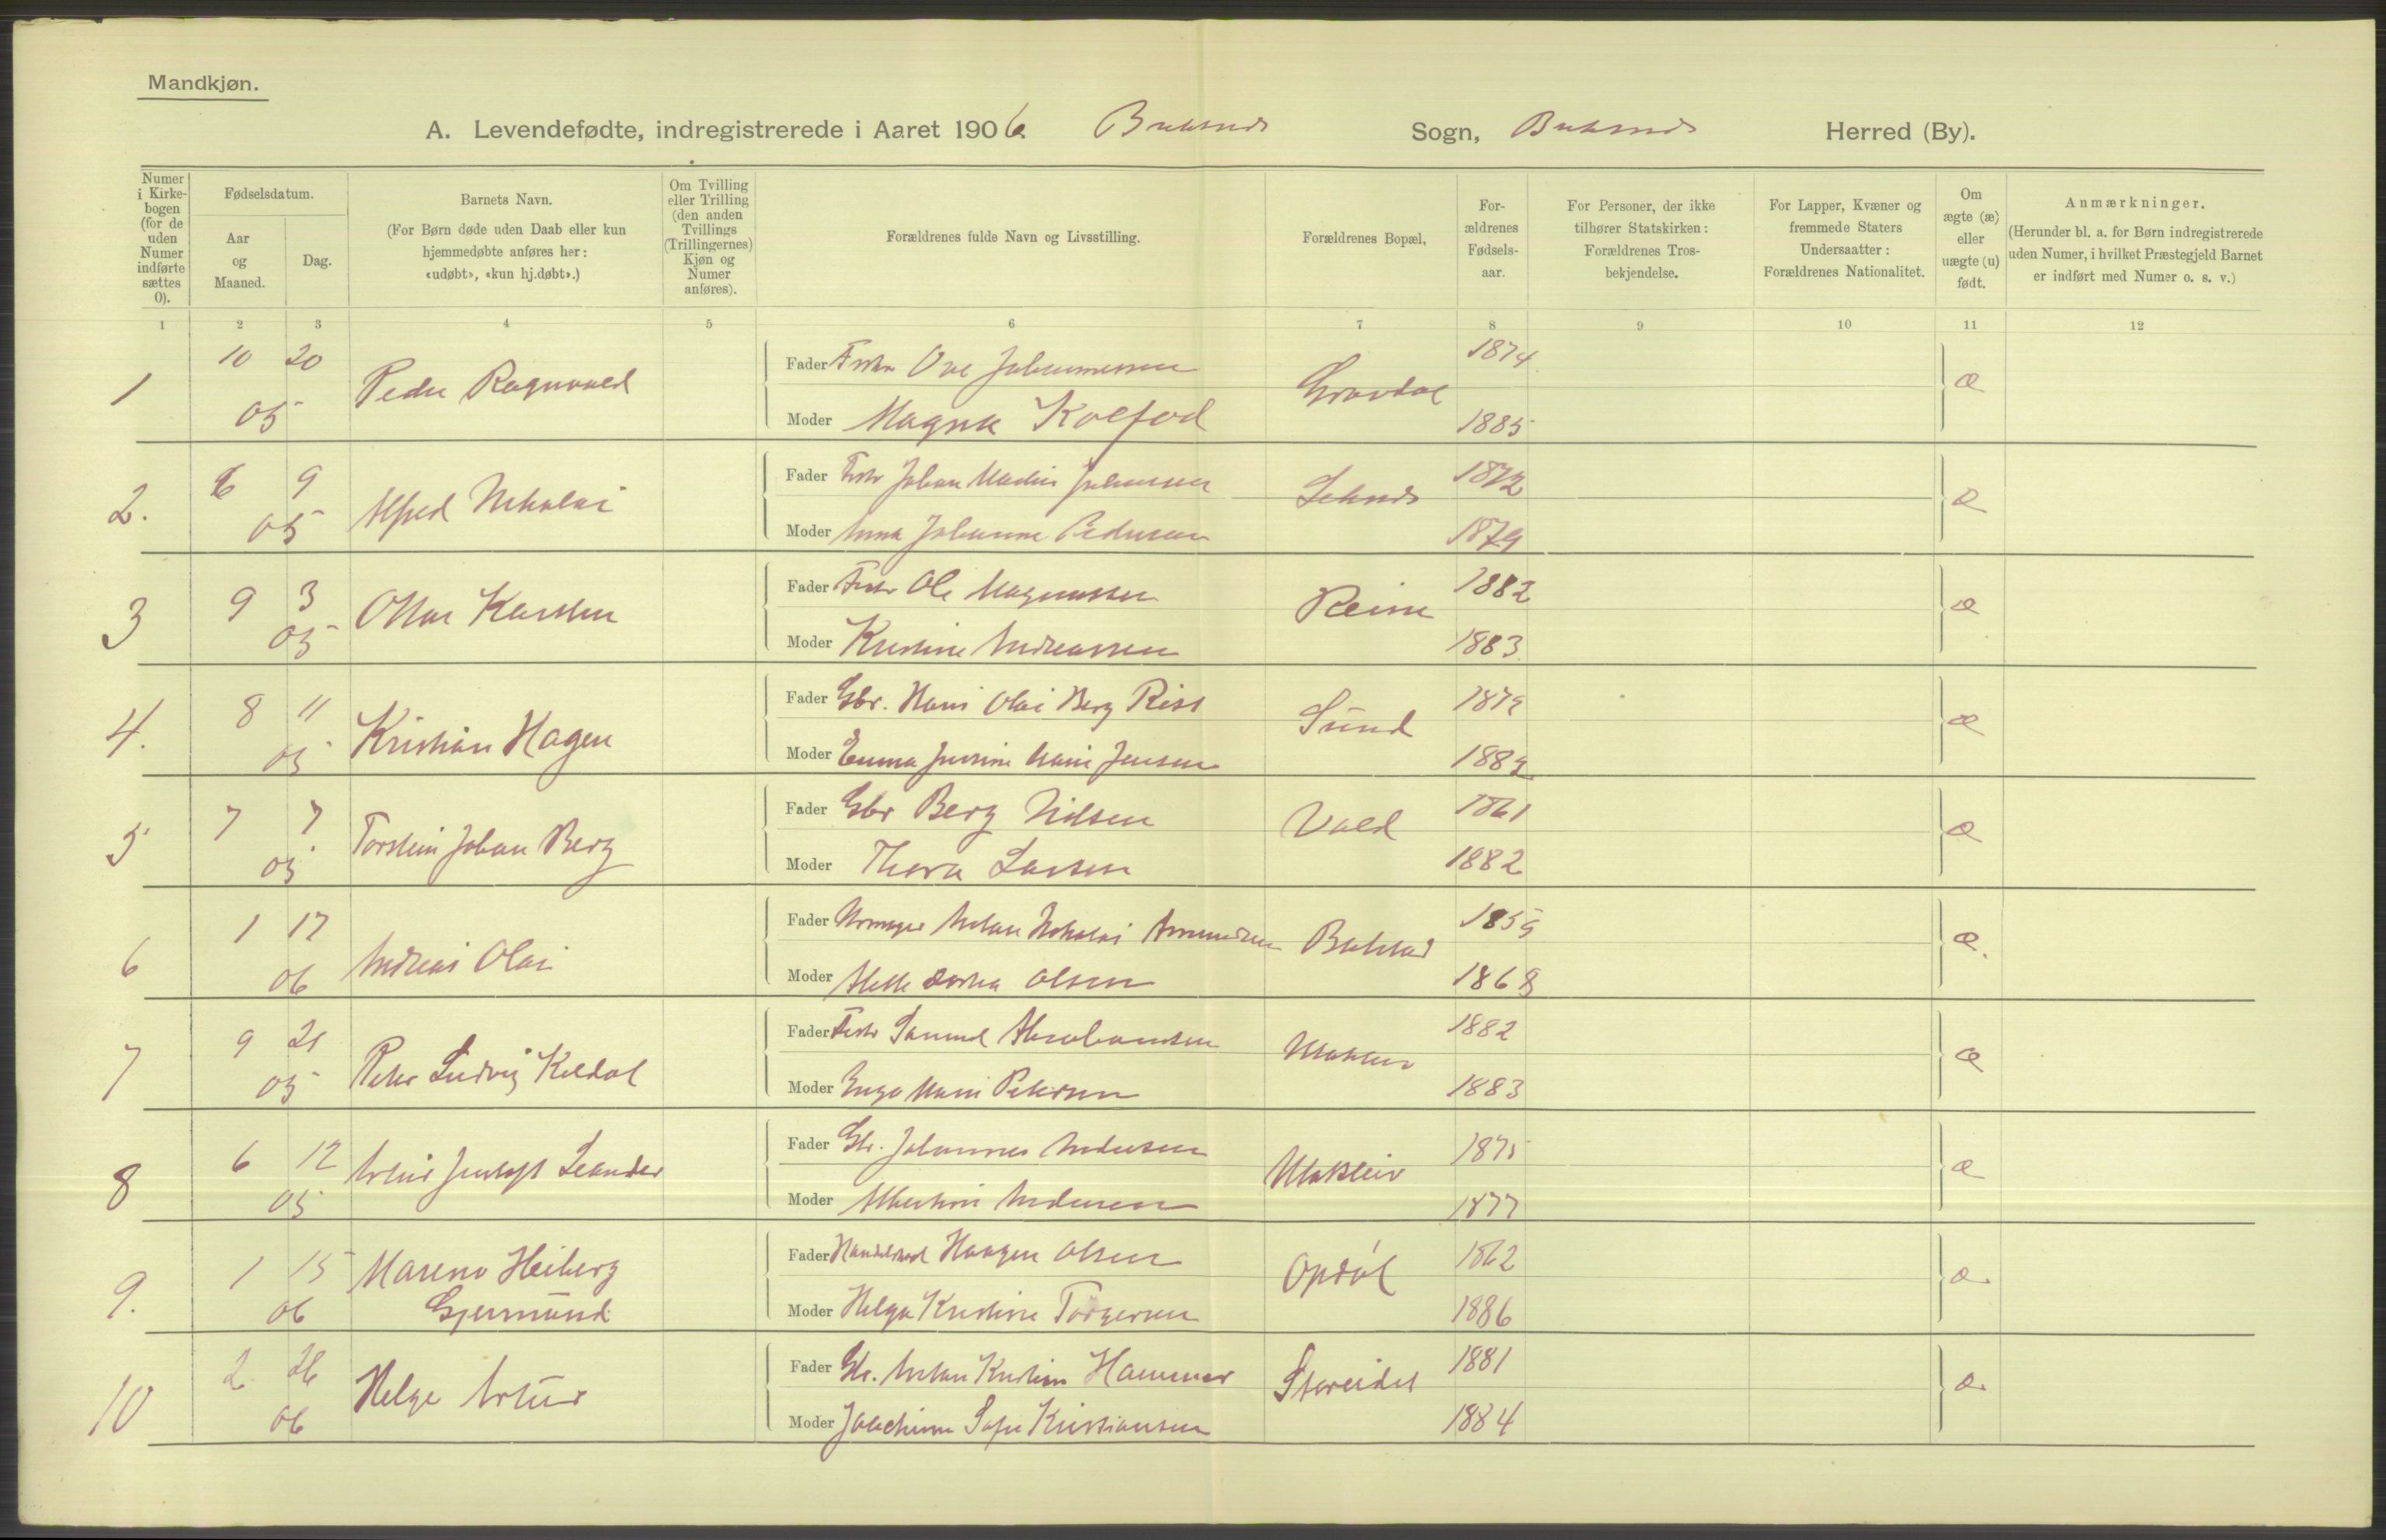 Mandkjøn.
A. Levendefødte, indregistrerede i Aaret 1906. Buksnes Sogn, Buksnes Herred (By).
Numer i Kirkebogen (for de uden Numer indførte sættes 0).
Fødselsdatum.
Aar og Maaned.
Dag.
Barnets Navn.
(For Børn døde uden Daab eller kun hjemmedøbte anføres her: «udøbt», «kun hj.døbt».)
Om Tvilling eller Trilling (den anden Tvillings (Trillingernes) Kjøn og Numer anføres).
Forældrenes fulde Navn og Livsstilling.
Forældrenes Bopæl,
Forældrenes Fødselsaar.
For Personer, der ikke tilhører Statskirken: Forældrenes Trosbekjendelse.
For Lapper, Kvæner og fremmede Staters Undersaatter: Forældrenes Nationalitet.
Om ægte (æ) eller uægte (u) født.
Anmærkninger.
(Herunder bl. a. for Børn indregistrerede uden Numer, i hvilket Præstegjeld Barnet er indført med Numer o. s. v.)
1 2 3 4 5 6 7 8 9 10 11 12
1 10 20 05 Peder Ragnvald Fader Ove Johannessen Gravdal 1874 æ
Moder Magna Kolfod 1885
2. 6 9 05 Alfred Nikolai Fader Johan Johansen Leknes 1872 æ
Moder Anna Johanne Pedersen 1879
3 9 3 05 Ottar Karsten Fader Ole Magnussen Reine 1882 æ
Moder Kristine Andreassen 1883
4. 8 11 05 Kristian Hagen Fader Gbr. Hans Olai Berg Rist Sund 1879 æ
Moder Emma Marie Jensen 1882
5 7 7 05 Torstein Johan Berg Fader Gbr Berg Nilsen Vold 1861 æ
Moder Thora Larsen 1882
6 1 17 06 Andreas Olai Fader Urmager Anton Nikolai Amundsen Balstad 1859 æ.
Moder Dortea Olsen 1868
7 9 21 05 Peter Ludvig Keldal Fader Samuel Abrahamsen 1882 æ
Moder Inga Marie Petersen 1883
8 6 12 05 Artur Leander Fader Gbr. Johannes Andersen 1875 æ
Moder Albertine Andersen 1877
9. 1 15 06 Mareno Heiberg Gjermund Fader Haagen Olsen Opdøl 1862 æ
Moder Helga Kristine Torgersen 1886
10 2 26 06 Helge Artur Fader Gbr. Anton Kristian Hammer Storeidet 1881 æ
Moder Joachime Sofie Kristiansen 1884